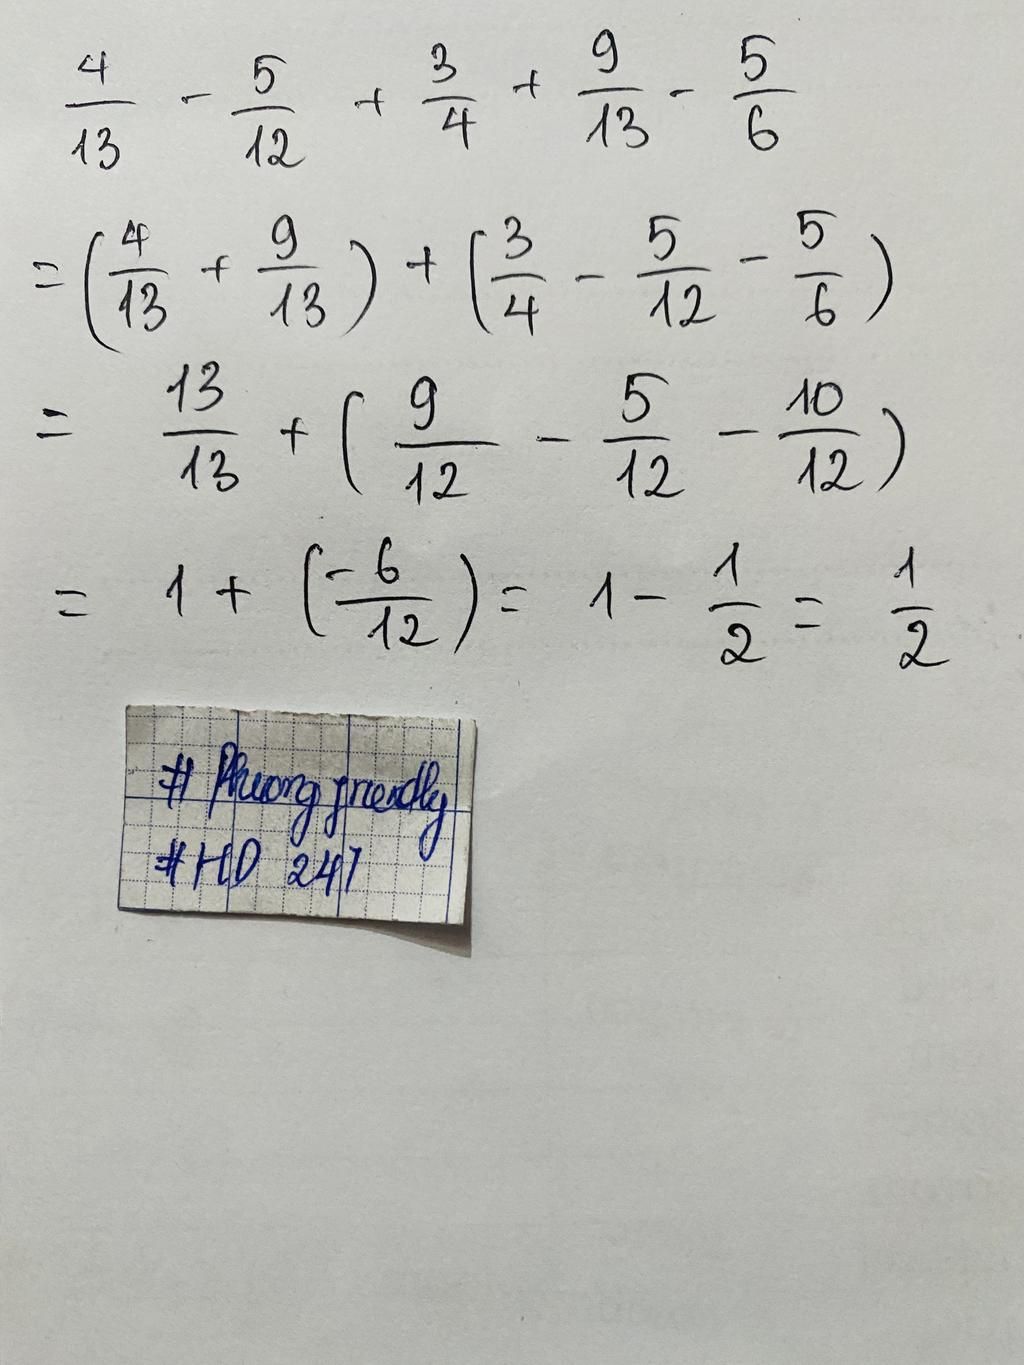 4/13 - 5/12 + 3/4 + 9/13 - 5/6
= (4/13 + 9/13) + (3/4 - 5/12 - 5/6)
= 13/13 + (9/12 - 5/12 - 10/12)
= 1 + (-6/12) = 1 - 1/2 = 1/2
# Phuong friendly
# HD 247